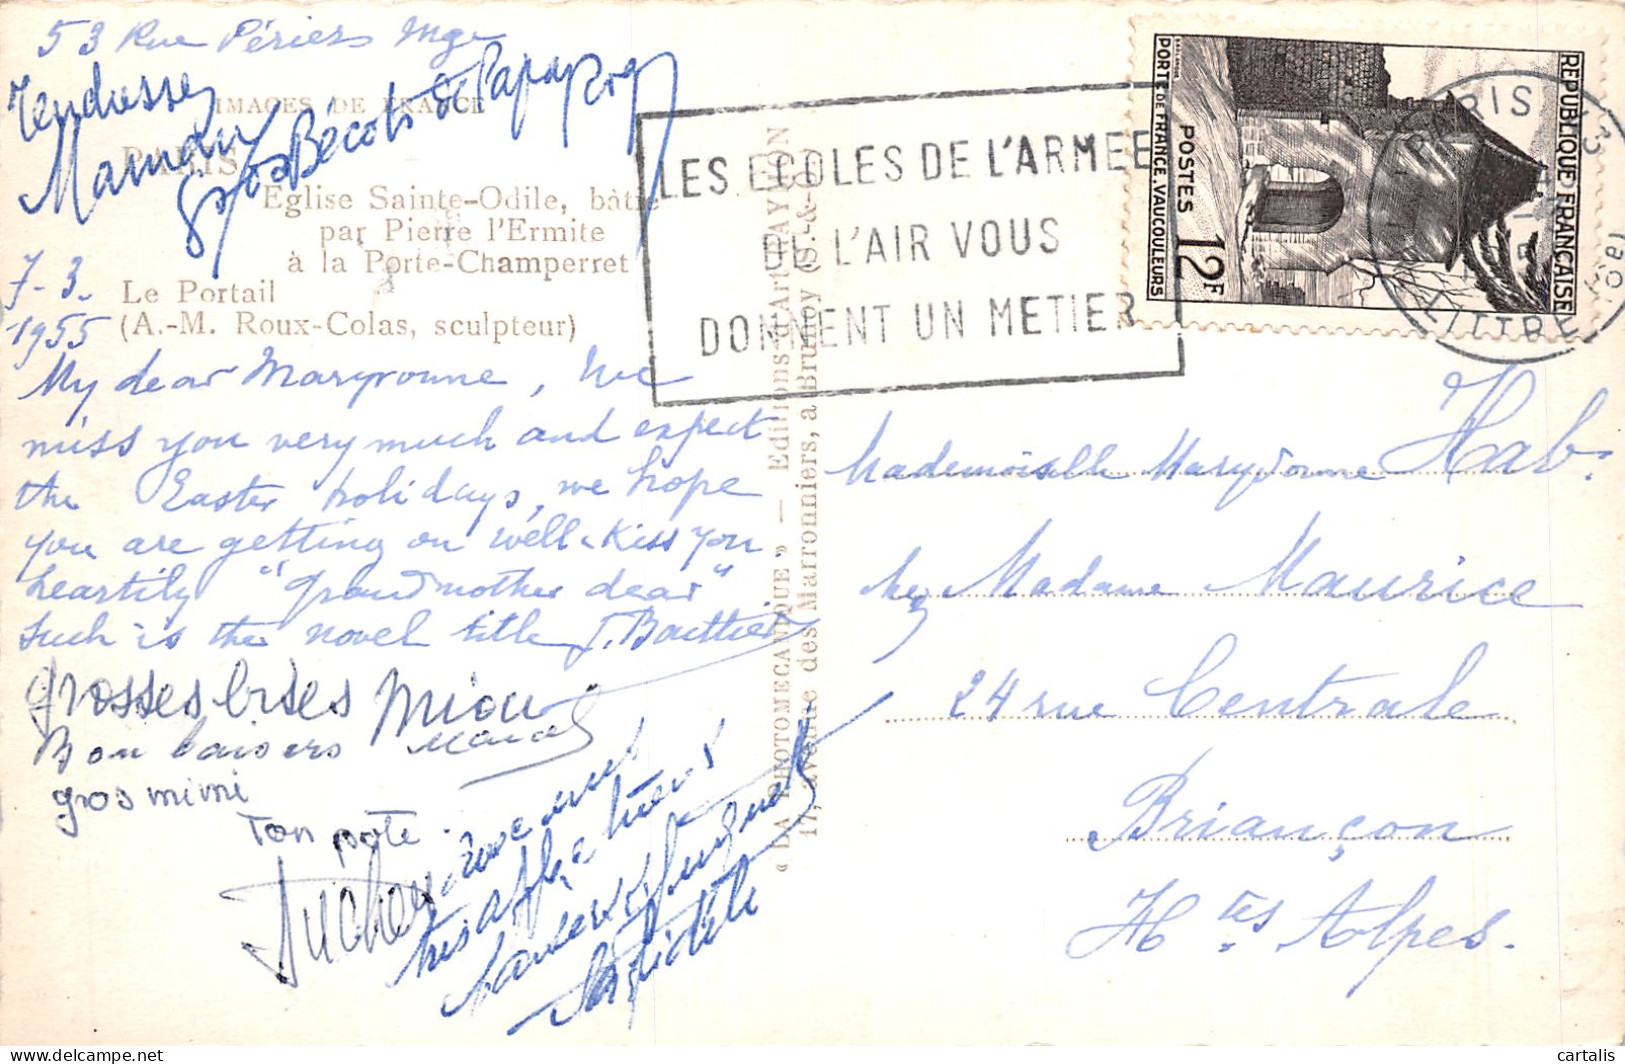 53 Rue Périers
Tendresses
Maman
gros Bécots de Papa
IMAGES DE FRANCE
PARIS
Eglise Sainte-Odile, bâtie
par Pierre l'Ermite
à la Porte-Champerret
Le Portail
(A.-M. Roux-Colas, sculpteur)
7-3-
1955
My dear Maryvonne, we
miss you very much and expect
the Easter holidays, we hope
you are getting on well. Kiss you
heartily "Grandmother dear"
such is the novel title
grosses bises Miou
Bon baisers
gros mimi
Ton pote
« LA PHOTOMECANIQUE » — Editions d'Art
17, avenue des Marronniers, à Brunoy (S.-&-O.)
LES ECOLES DE L'ARMEE
DE L'AIR VOUS
DONNENT UN METIER
REPUBLIQUE FRANÇAISE
POSTES 12F
PORTE DE FRANCE. VAUCOULEURS
PARIS
LITTRE
Mademoiselle Maryvonne Hab.
chez Madame Maurice
24 rue Centrale
Briançon
Htes Alpes.
cartalis